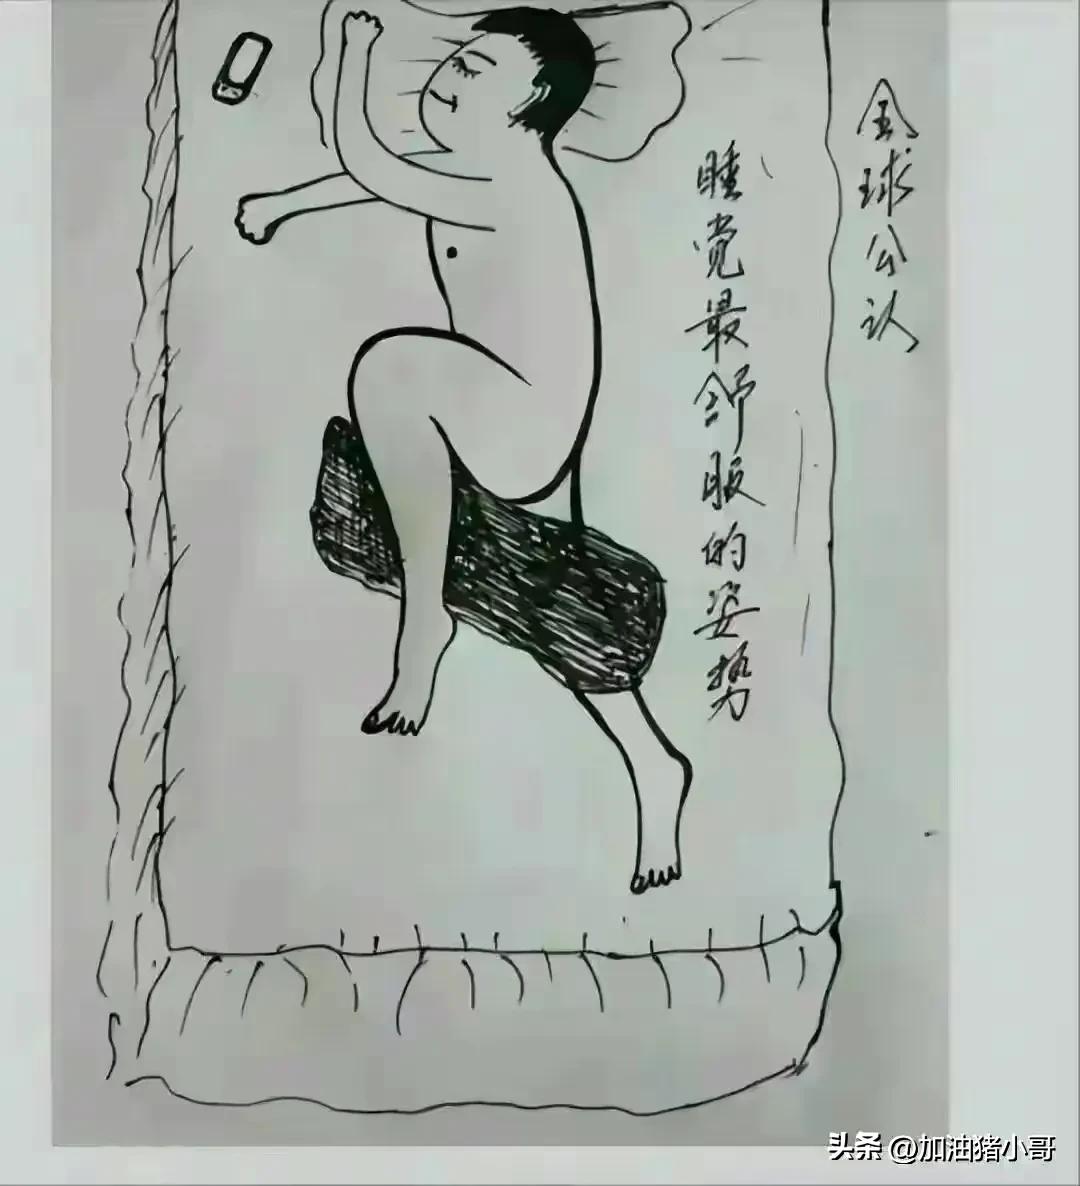 全球公认
睡觉最舒服的姿势
头条 @加油猪小哥